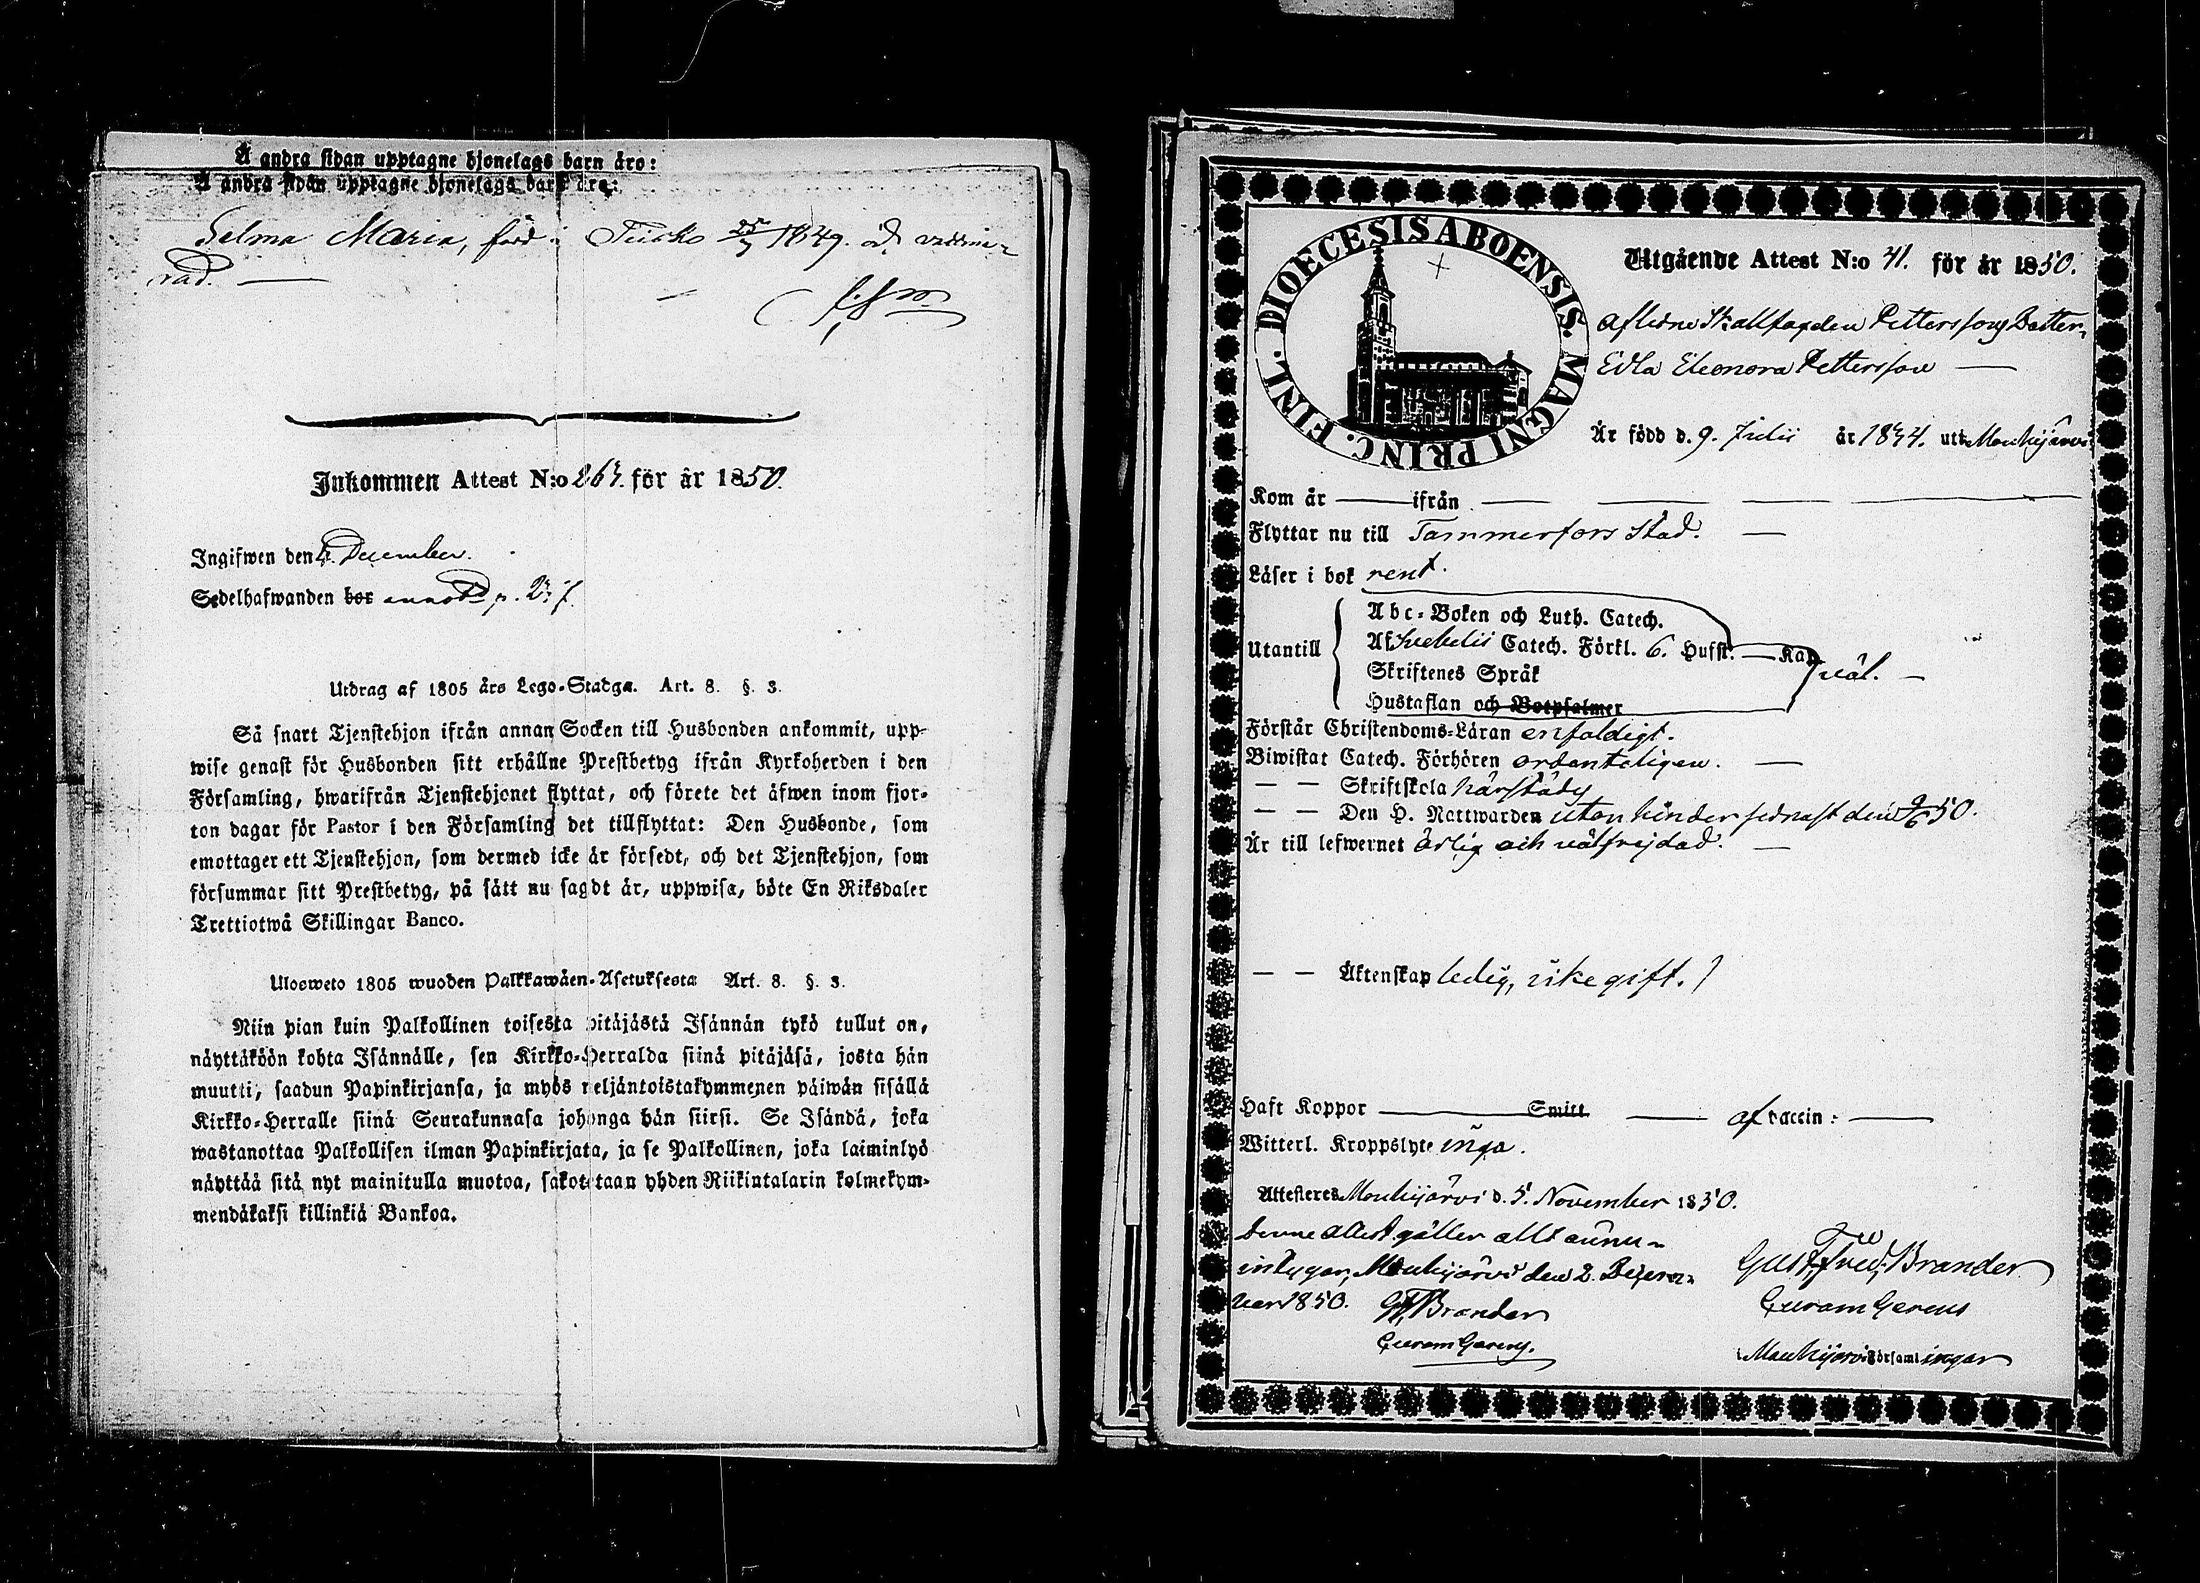 Å andra sidan upptagne hjonelags barn äro:
Å andra sidan upptagne hjonelags barn äro:
Selma Maria, född i 25/7 1849. är vaccine-
rad. —
Inkommen Attest N:o 263. för år 1850.
Ingifwen den 4 December.
Sedelhafwanden bor annot p.
Utdrag af 1805 års Lego-Stadga. Art. 8. §. 3.
Så snart Tjenstehjon ifrån annan Socken till Husbonden ankommit, upp-
wise genast för Husbonden sitt erhållne Prestbetyg ifrån Kyrkoherden i den
Församling, hwarifrån Tjenstehjonet flyttat, och förete det äfwen inom fjor-
ton dagar för Pastor i den Församling det tillflyttat: Den Husbonde, som
emottager ett Tjenstehjon, som dermed icke är försedt, och det Tjenstehjon, som
försummar sitt Prestbetyg, på sätt nu sagdt är, uppwisa, böte En Riksdaler
Trettiotwå Skillingar Banco.
Ulosweto 1805 wuoden Palkkawäen-Asetuksesta Art. 8. §. 3.
Niin pian kuin Palkollinen toisesta pitäjästä Isännän tykö tullut on,
näyttäköön kohta Isännälle, sen Kirkko-Herralda siinä pitäjäsä, josta hän
muutti, saadun Papinkirjansa, ja myös neljäntoistakymmenen päiwän sisällä
Kirkko-Herralle siinä Seurakunnasa johonga hän siirsi. Se Isändä, joka
wastanottaa Palkollisen ilman Papinkirjata, ja se Palkollinen, joka laiminlyö
näyttää sitä nyt mainitulla muotoa, sakotetaan yhden Riikintalarin kolmekym-
mendäkaksi killinkiä Bankoa.
DIOECESIS ABOENSIS. MAGNI PRINC. FINL.
Utgående Attest N:o 41. för år 1850.
Aflidne Skallfogden Petterssons Dotter,
Edla Eleonora Pettersson —
Är född d. 9. Julii år 1834. uti Mouhijärvi
Kom år — ifrån —
Flyttar nu till Tammerfors Stad. —
Läser i bok rent.
Abc-Boken och Luth. Catech.
Utantill Af Svebelii Catech. Förkl. 6. Hufst. — Kap. väl. —
Skriftenes Språk
Hustaflan och Botpsalmer
Förstår Christendoms-Läran enfaldigt.
Biwistat Catech. Förhören ordenteligen. —
— — Skriftskola härstädes
— — Den H. Nattwarden utan hinder sednast den 9/6 50.
Är till lefwernet ärlig och välfrejdad. —
— — Äktenskap ledig, icke gift.
Haft Koppor — Smitt — af vaccin: —
Witterl. Kroppslyte inga.
Attesteres Mouhijärvi d. 5. November 1850.
Gust. Fred. Brander
Mouhijärvi Församlingar
Denne attest gäller allt ännu
intygar, Mouhijärvi den 2. Decem-
ber 1850. G. F. Brander